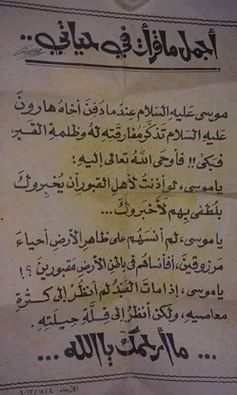 أجمل ما قرأت في حياتي..
موسى عليه السلام عندما دفن أخاه هارون
عليه السلام تذكر مفارقته له وظلمة القبر،
فبكى!! فأوحى الله تعالى إليه:
يا موسى، لو أذنت لأهل القبور أن يخبروك
بلطفي بهم لأخبروك...
يا موسى، لم أنسهم على ظاهر الأرض أحياء
مرزوقين، أفأنساهم في باطن الأرض مقبورين؟!
يا موسى، إذا مات العبد لم أنظر إلى كثرة
معاصيه، ولكن أنظر إلى قلة حيلته.
... ما أرحمك يا الله ...